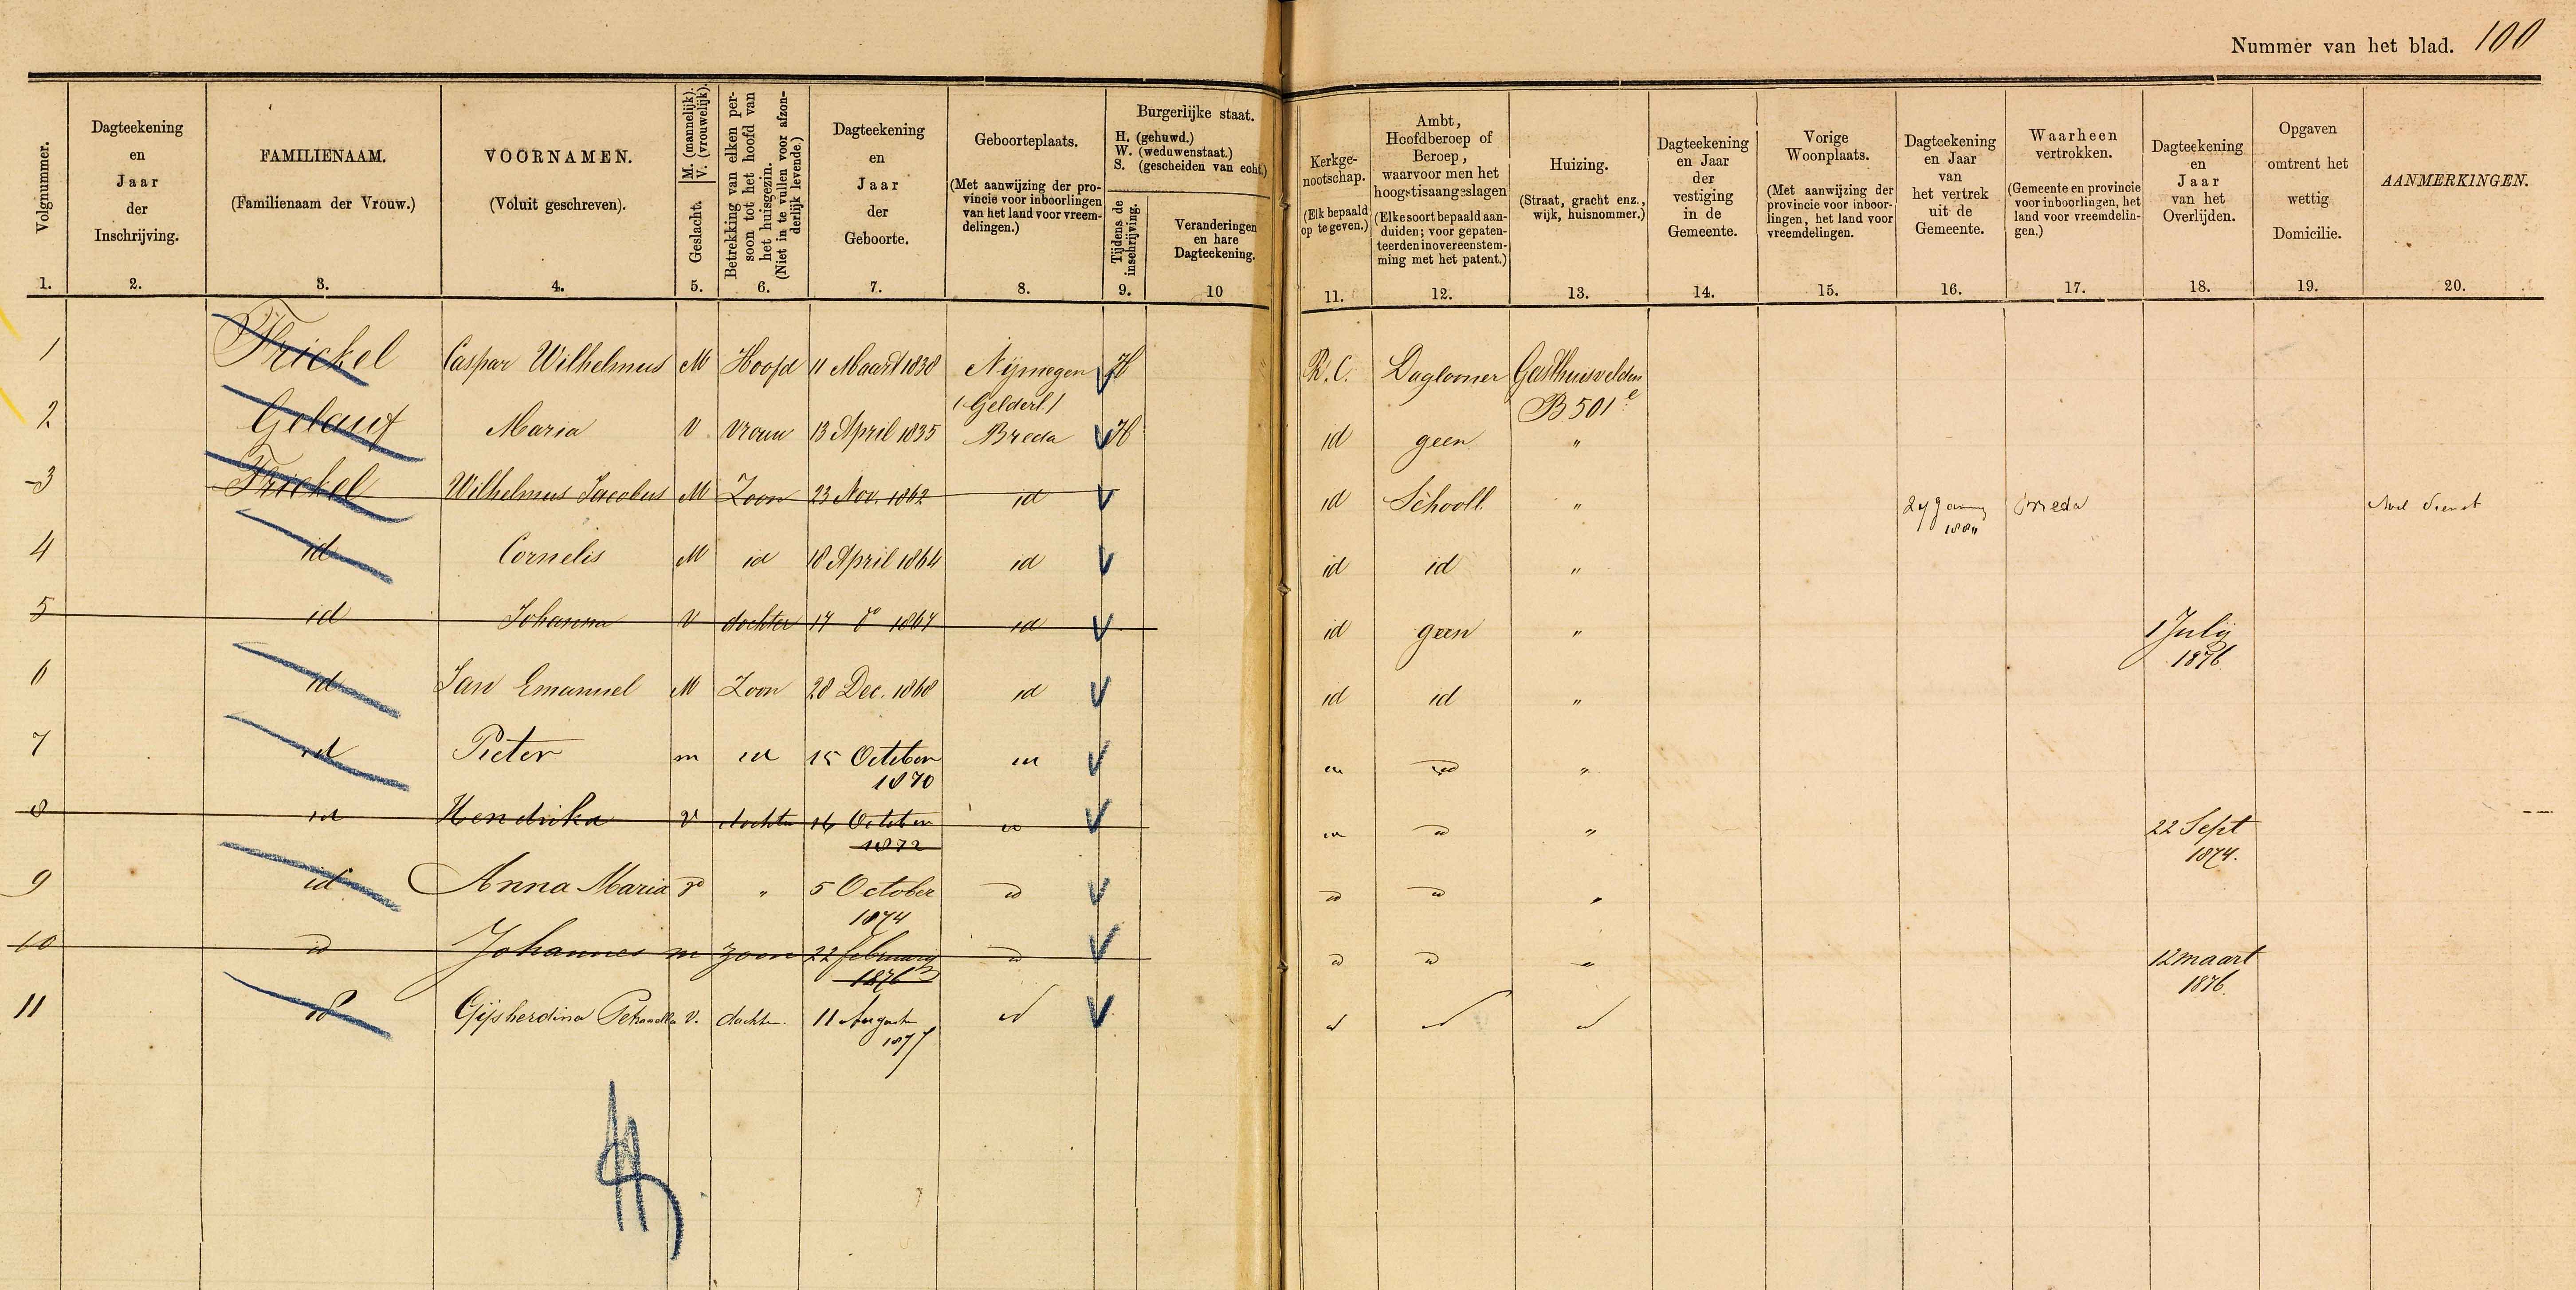 Nummer van het blad. 100
Volgnummer.
Dagteekening
en
Jaar
der
Inschrijving.
FAMILIENAAM.
(Familienaam der Vrouw.)
VOORNAMEN.
(Voluit geschreven).
M. (mannelijk).
V. (vrouwelijk).
Geslacht.
Betrekking van elken per-
soon tot het hoofd van
het huisgezin.
(Niet in te vullen voor afzon-
derlijk levende.)
Dagteekening
en
Jaar
der
Geboorte.
Geboorteplaats.
(Met aanwijzing der pro-
vincie voor inboorlingen
van het land voor vreem-
delingen.)
Burgerlijke staat.
H. (gehuwd.)
W. (weduwenstaat.)
S. (gescheiden van echt.)
Tijdens de
inschrijving.
Veranderingen
en hare
Dagteekening.
Kerkge-
nootschap.
(Elk bepaald
op te geven.)
Ambt,
Hoofdberoep of
Beroep,
waarvoor men het
hoogst is aangeslagen
(Elke soort bepaald aan-
duiden; voor gepaten-
teerden in overeenstem-
ming met het patent.)
Huizing.
(Straat, gracht enz.,
wijk, huisnommer.)
Dagteekening
en Jaar
der
vestiging
in de
Gemeente.
Vorige
Woonplaats.
(Met aanwijzing der
provincie voor inboor-
lingen, het land voor
vreemdelingen.
Dagteekening
en Jaar
van
het vertrek
uit de
Gemeente.
Waarheen
vertrokken.
(Gemeente en provincie
voor inboorlingen, het
land voor vreemdelin-
gen.)
Dagteekening
en
Jaar
van het
Overlijden.
Opgaven
omtrent het
wettig
Domicilie.
AANMERKINGEN.
1. 2. 3. 4. 5. 6. 7. 8. 9. 10 11. 12. 13. 14. 15. 16. 17. 18. 19. 20.
1 Frickel Caspar Wilhelmus M Hoofd 11 Maart 1838 Nijmegen H R.C. Daglooner Gasthuisvelden
(Gelderl.) B 501 e
2 Gelauf Maria V Vrouw 13 April 1835 Breda H id geen "
3 Frickel Wilhelmus Jacobus M Zoon 23 Nov. 1862 id id Schooll. " Breda
4 id Cornelis M id 18 April 1864 id id id "
5 id Johanna V dochter 17 do 1867 id id geen " 1 July
1876
6 id Jan Emanuel M Zoon 28 Dec. 1868 id id id "
7 id Pieter m id 15 October id id id "
1870
8 id Hendrika V dochter 16 October id id id " 22 Sept
1872 1874.
9 id Anna Maria " 5 October id id id "
1874
10 id Johannes m zoon 22 february id id id " 12 maart
1876 1876.
11 id Gijsberdina V. dochter. 11 August id id id id
1877